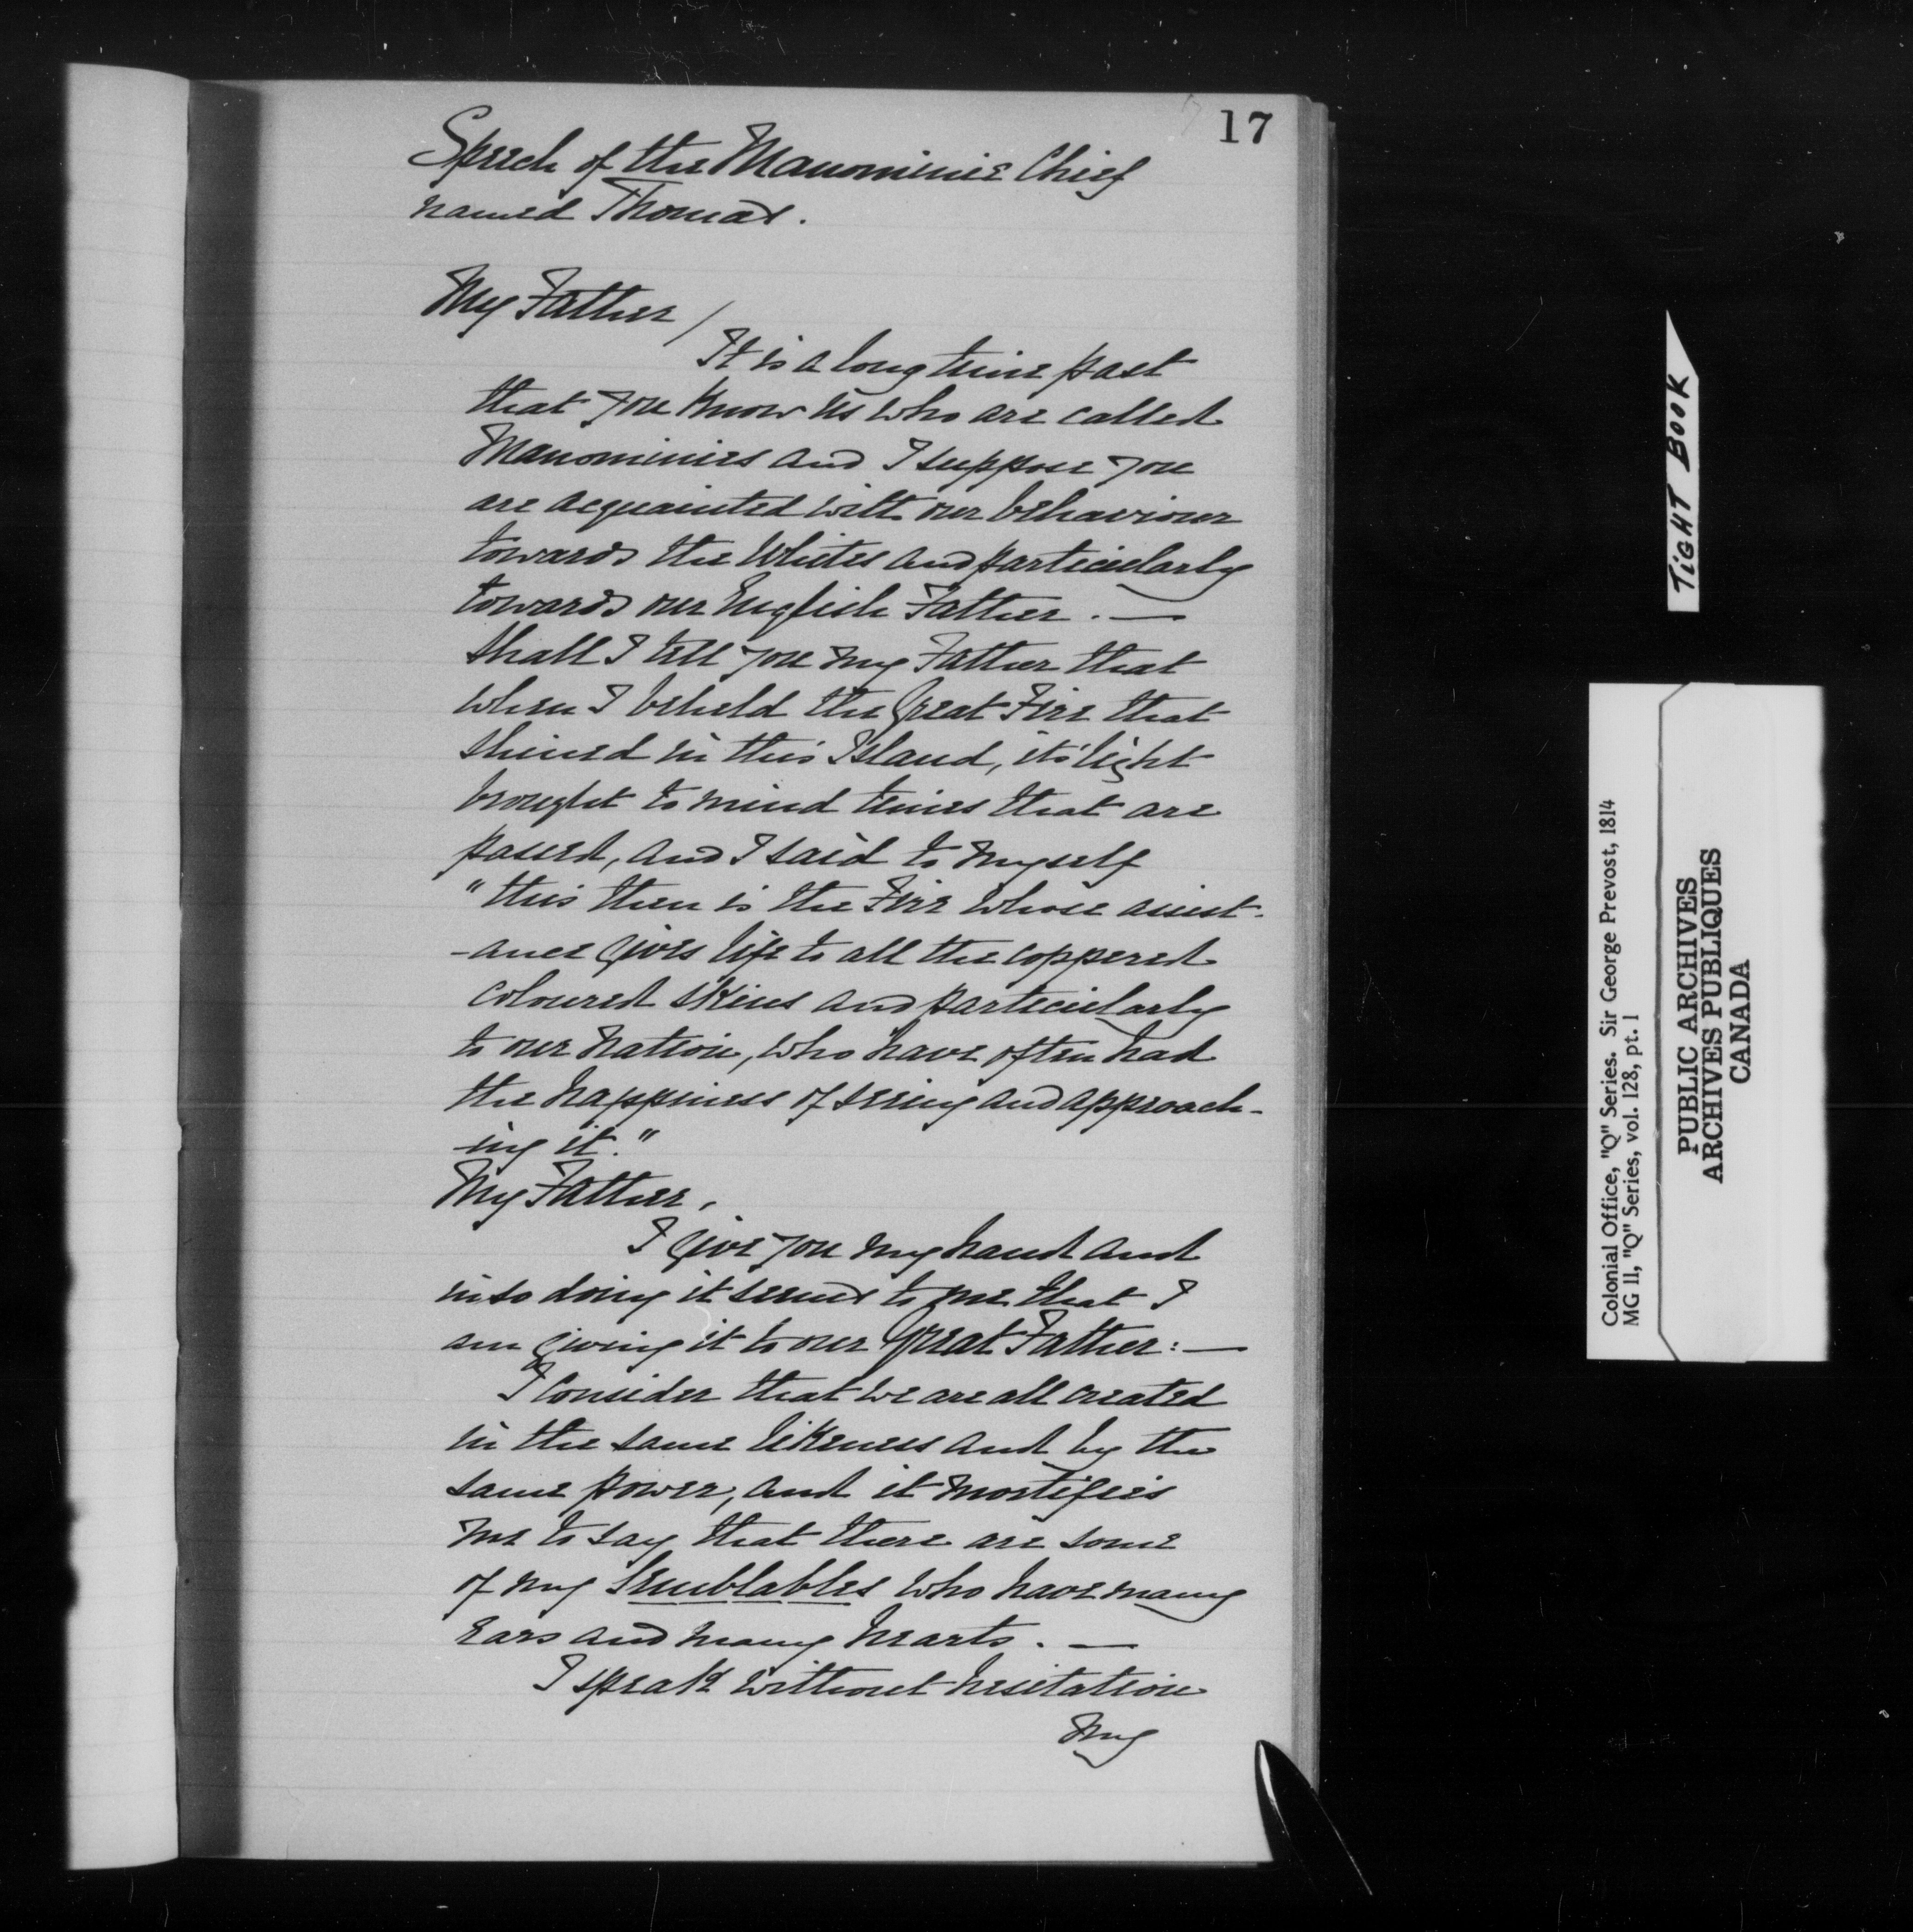 17
Speech of the Manominie Chief
named Thomas.
My Father/
It is a long time past
that you know us who are called
Manominies and I suppose you
are acquainted with our behaviour
towards the Whites and particularly
towards our English Father. —
Shall I tell you my Father that
when I beheld the Great Fire that
shined in this Island, its light
brought to mind times that are
passed, and I said to myself
"this then is the Fire whose assist-
-ance gives life to all the coppered
coloured skins and particularly
to our nation, who have often had
the happiness of seeing and approach-
-ing it."
My Father,
I give you my hand and
in so doing it seems to me that I
am giving it to our Great Father: —
I consider that we are all created
in the same likeness and by the
same power, and it mortifies
me to say that there are some
of my Semblables who have many
Ears and many hearts. —
I speak without hesitation
My
TIGHT BOOK
Colonial Office, "Q" Series. Sir George Prevost, 1814
MG 11, "Q" Series, vol. 128, pt. 1
PUBLIC ARCHIVES
ARCHIVES PUBLIQUES
CANADA